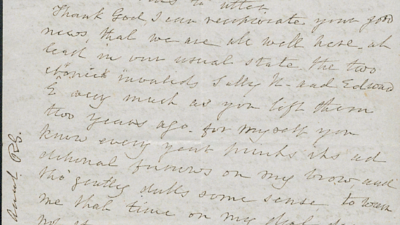 to utter.
Thank God I can reciprocate your good
news, that we are all well here, at
least in our usual state the two
chronick invalids Sally K. and Edward
E. very much as you left them
two years ago. for myself you
know every year prints its ad
ditional furrows on my brow and
tho' gently dulls some sense to warn
me that time on my